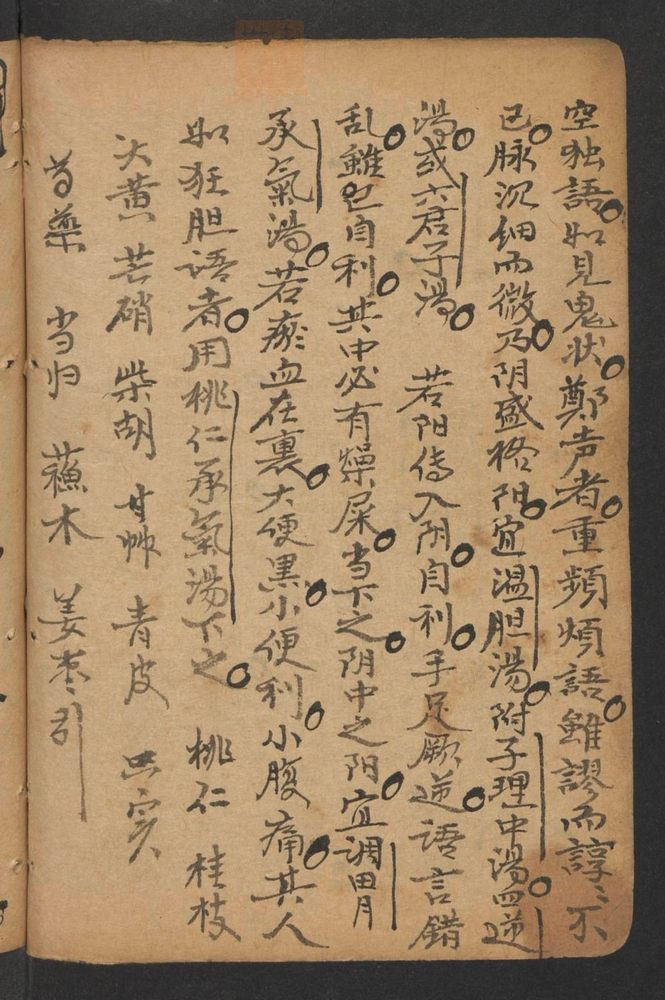 空独語。如見鬼状。鄭声者。重頻煩語。雖謬而諄〻不
已。脉沉细而微。乃阴盛格阳。宜温胆湯。附子理中湯。四逆
湯。或六君子湯。 若阳傳入阴。自利。手足厥逆。語言錯
乱。雖已自利。其中必有燥屎。当下之。阴中之阳。宜调胃
承氣湯。若瘀血在裏。大便黒。小便利。小腹痛。其人
如狂胆语者。用桃仁承氣湯下之。 桃仁 桂枝
大黄 芒硝 柴胡 甘艸 青皮 只实
芍藥 当归 蘓木 姜枣引